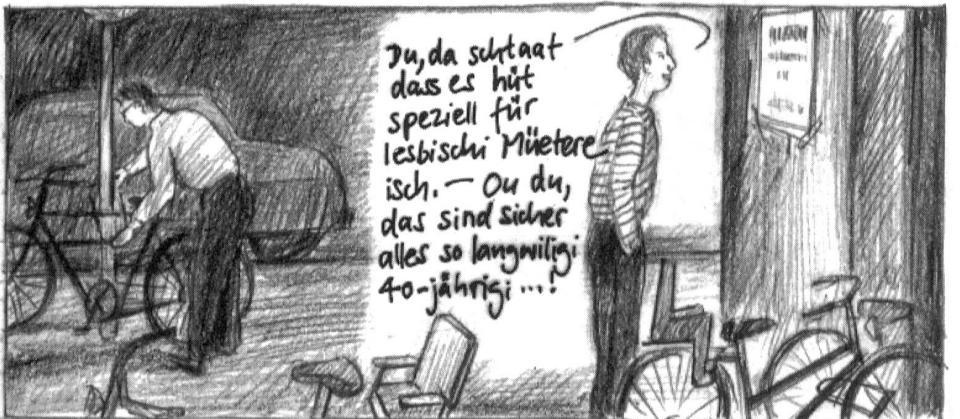 Du, da schtaat
dass es hüt
speziell für
lesbischi Müetere
isch. — Ou du,
das sind sicher
alles so langwiligi
40-jährigi ...!